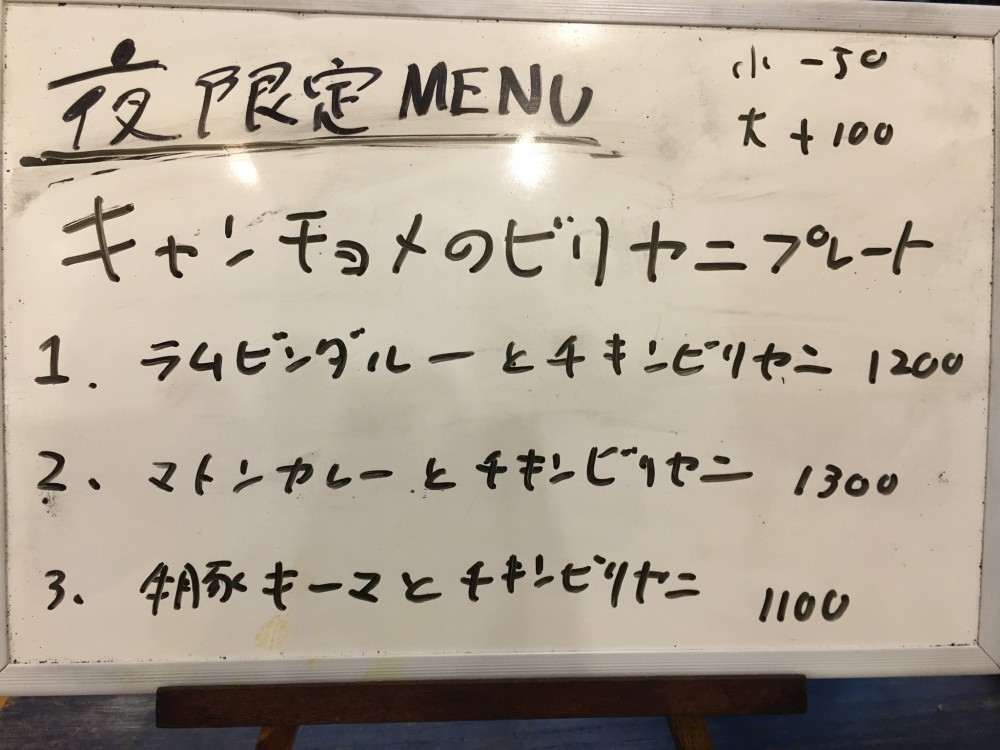 夜限定MENU
小 -50
大 +100
キャンチョメのビリヤニプレート
1. ラムビンダルーとチキンビリヤニ 1200
2. マトンカレーとチキンビリヤニ 1300
3. 牛豚キーマとチキンビリヤニ 1100